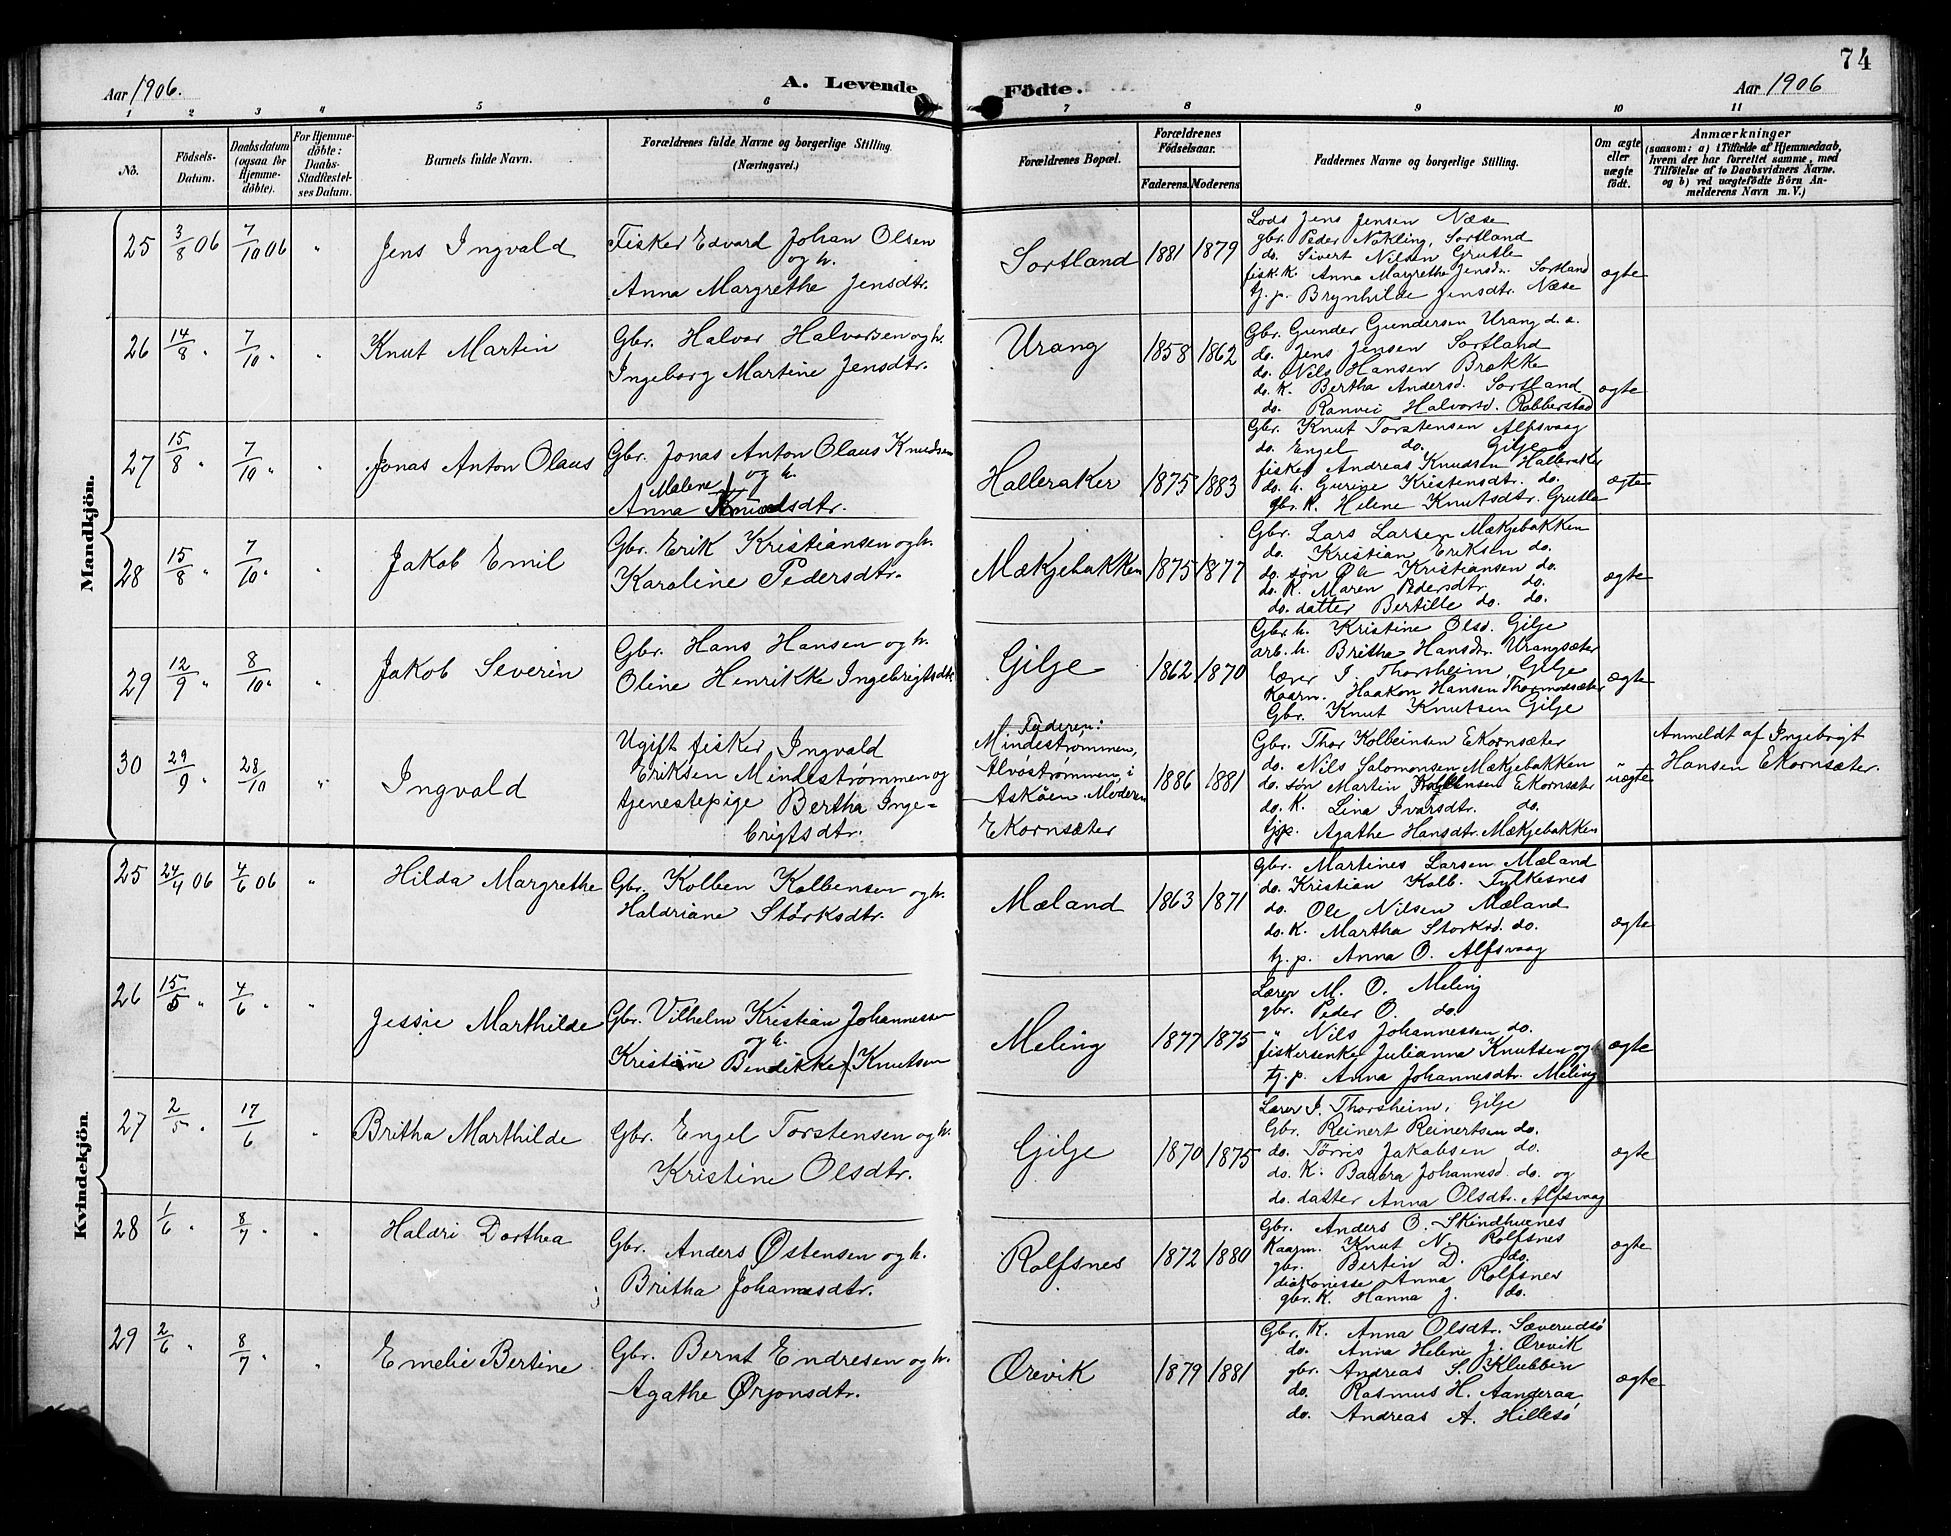 74
Aar 1906.
A. Levende Födte.
Aar 1906
1 2 3 4 5 6 7 8 9 10 11
No.
Födsels-
Datum.
Daabsdatum
(ogsaa for
Hjemme-
döbte).
For Hjemme-
döbte:
Daabs-
Stadfæstel-
ses Datum.
Barnets fulde Navn.
Forældrenes fulde Navne og borgerlige Stilling.
(Næringsvei.)
Forældrenes Bopæl.
Forældrenes
Födselsaar.
Faderens. Moderens.
Faddernes Navne og borgerlige Stilling.
Om ægte
eller
uægte
födt.
Anmærkninger
(saasom: a) i Tilfælde af Hjemmedaab,
hvem der har forrettet samme, med
Tilföielse af to Daabsvidners Navne.
og b) ved uægtefödte Börn An-
melderens Navn m. V.)
Mandkjön.
25 3/8 06 7/10 06 " Jens Ingvald
Fisker Edvard Johan Olsen
og h.
Anna Margrethe Jensdtr.
Sortland 1881 1879
Lods Jens Jensen Næse
gbr. Peder Nökling, Sortland
do. Sivert Nilsen Grutle
fisk. k. Anna Margrethe Jensdr. Sortland
tj. p. Brynhilde Jensdtr. Næse
ægte
26 14/8 " 7/10 " " Knut Martin
Gbr. Halvor Halvorsen og h.
Ingeborg Martine Jensdtr.
Urang 1858 1862
Gbr. Gunder Gundersen Urang d. e.
do. Jens Jensen Sortland
do. Nils Hansen Brække
do. k. Bertha Andersd. Sortland
do. Ranvei Halvorsd. Robberstad
ægte
27 15/8 " 7/10 " " Jonas Anton Olaus
Gbr. Jonas Anton Olaus Knudsen
og h.
Malene
Anna Knudsdtr.
Halleraker 1875 1883
Gbr. Knut Torstensen Alfsvaag
do. Engel do. Gilje
fisker Andreas Knudsen Halleraker
do. h. Gurine Kristensdtr. do.
gbr. k. Helene Knutsdtr. Grutle
ægte
28 15/8 " 7/10 " " Jakob Emil
Gbr. Erik Kristiansen og h.
Karoline Pedersdtr.
Mækjebakken 1875 1877
Gbr. Lars Larsen Mækjebakken
do. Kristian Eriksen do.
do. søn Ole Kristiansen do.
do. k. Maren Pedersdtr. do.
do. datter Bertille do. do.
ægte
29 12/9 " 8/10 " " Jakob Severin
Gbr. Hans Hansen og h.
Oline Henrikke Ingebrigtsdtr.
Gilje 1862 1870
Gbr. h. Kristine Olsd. Gilje
arb. h. Britha Hansdr. Urangsæter
lærer I. Thorsheim, Gilje
Kaarm. Haakon Hansen Thormodsæter
Gbr. Knut Knutsen Gilje
ægte
30 29/9 " 28/10 " Ingvald
Ugift fisker Ingvald
Eriksen Mindestrømmen og
tjenestepige Bertha Inge-
brigtsdtr.
Faderen:
Mindestrømmen,
Alvøstrømmen, i
Askøen. Moderen
Ekornsæter
1886 1881
Gbr. Thor Kolbeinsen Ekornsæter
do. Nils Salomonsen Mækjebakken
do. søn Martin Kolbensen Ekornsæter
do. k. Lina Ivarsdtr. do.
tj.p. Agathe Hansdtr. Mækjebakken
uægte
Anmeldt af Ingebrigt
Hansen Ekornsæter.
Kvindekjön.
25 24/4 06 4/6 06 " Hilda Margrethe
Gbr. Kolben Kolbensen og h.
Haldriane Størksdtr.
Mæland 1863 1871
Gbr. Martines Larsen Mæland
do. Kristian Kolb. Fylkesnes
do. Ole Nilsen Mæland
do. k. Martha Storksd. do.
tj. p. Anna O. Alfsvaag
ægte
26 15/5 " 4/6 " " Jessie Marthilde
Gbr. Vilhelm Kristian Johannessen
og h.
Kristine Bendikke Knutsen
Meling 1877 1875
Lærer M. O. Meling
gbr. Peder O. do.
" Nils Johannessen do.
fiskersenke Julianna Knutsen og
tj. p. Anna Johannesdtr. Meling
ægte
27 2/5 " 17/6 " Britha Marthilde
Gbr. Engel Torstensen og h.
Kristine Olsdtr.
Gilje 1870 1875
Lærer I. Thorsheim, Gilje
Gbr. Reinert Reinertsen do.
do. Tørris Jakobsen do.
do. K. Barbra Johannesd. do. og
do. datter Anna Olsdtr. Alfsvaag
ægte
28 1/6 " 8/7 " " Haldri Dorthea
Gbr. Anders Østensen og h.
Britha Johannesdtr.
Rolfsnes 1872 1880
Gbr. Anders O. Skindhuenes
Kaarm. Knut N. Rolfsnes
gbr. Bertin D. do.
diakonisse Anna Rolfsnes
gbr. k. Hanna J. do.
ægte
29 2/6 " 8/7 " " Emelie Bertine
Gbr. Bernt Endresen og h.
Agathe Ørjonsdtr.
Ørevik 1879 1881
Gbr. K. Anna Olsdtr. Sæverudsø
do. Anna Helene J. Ørevik
gbr. Andreas S. Klubben
do. Rasmus H. Aanderaa
do. Andreas A. Hillesö
ægte